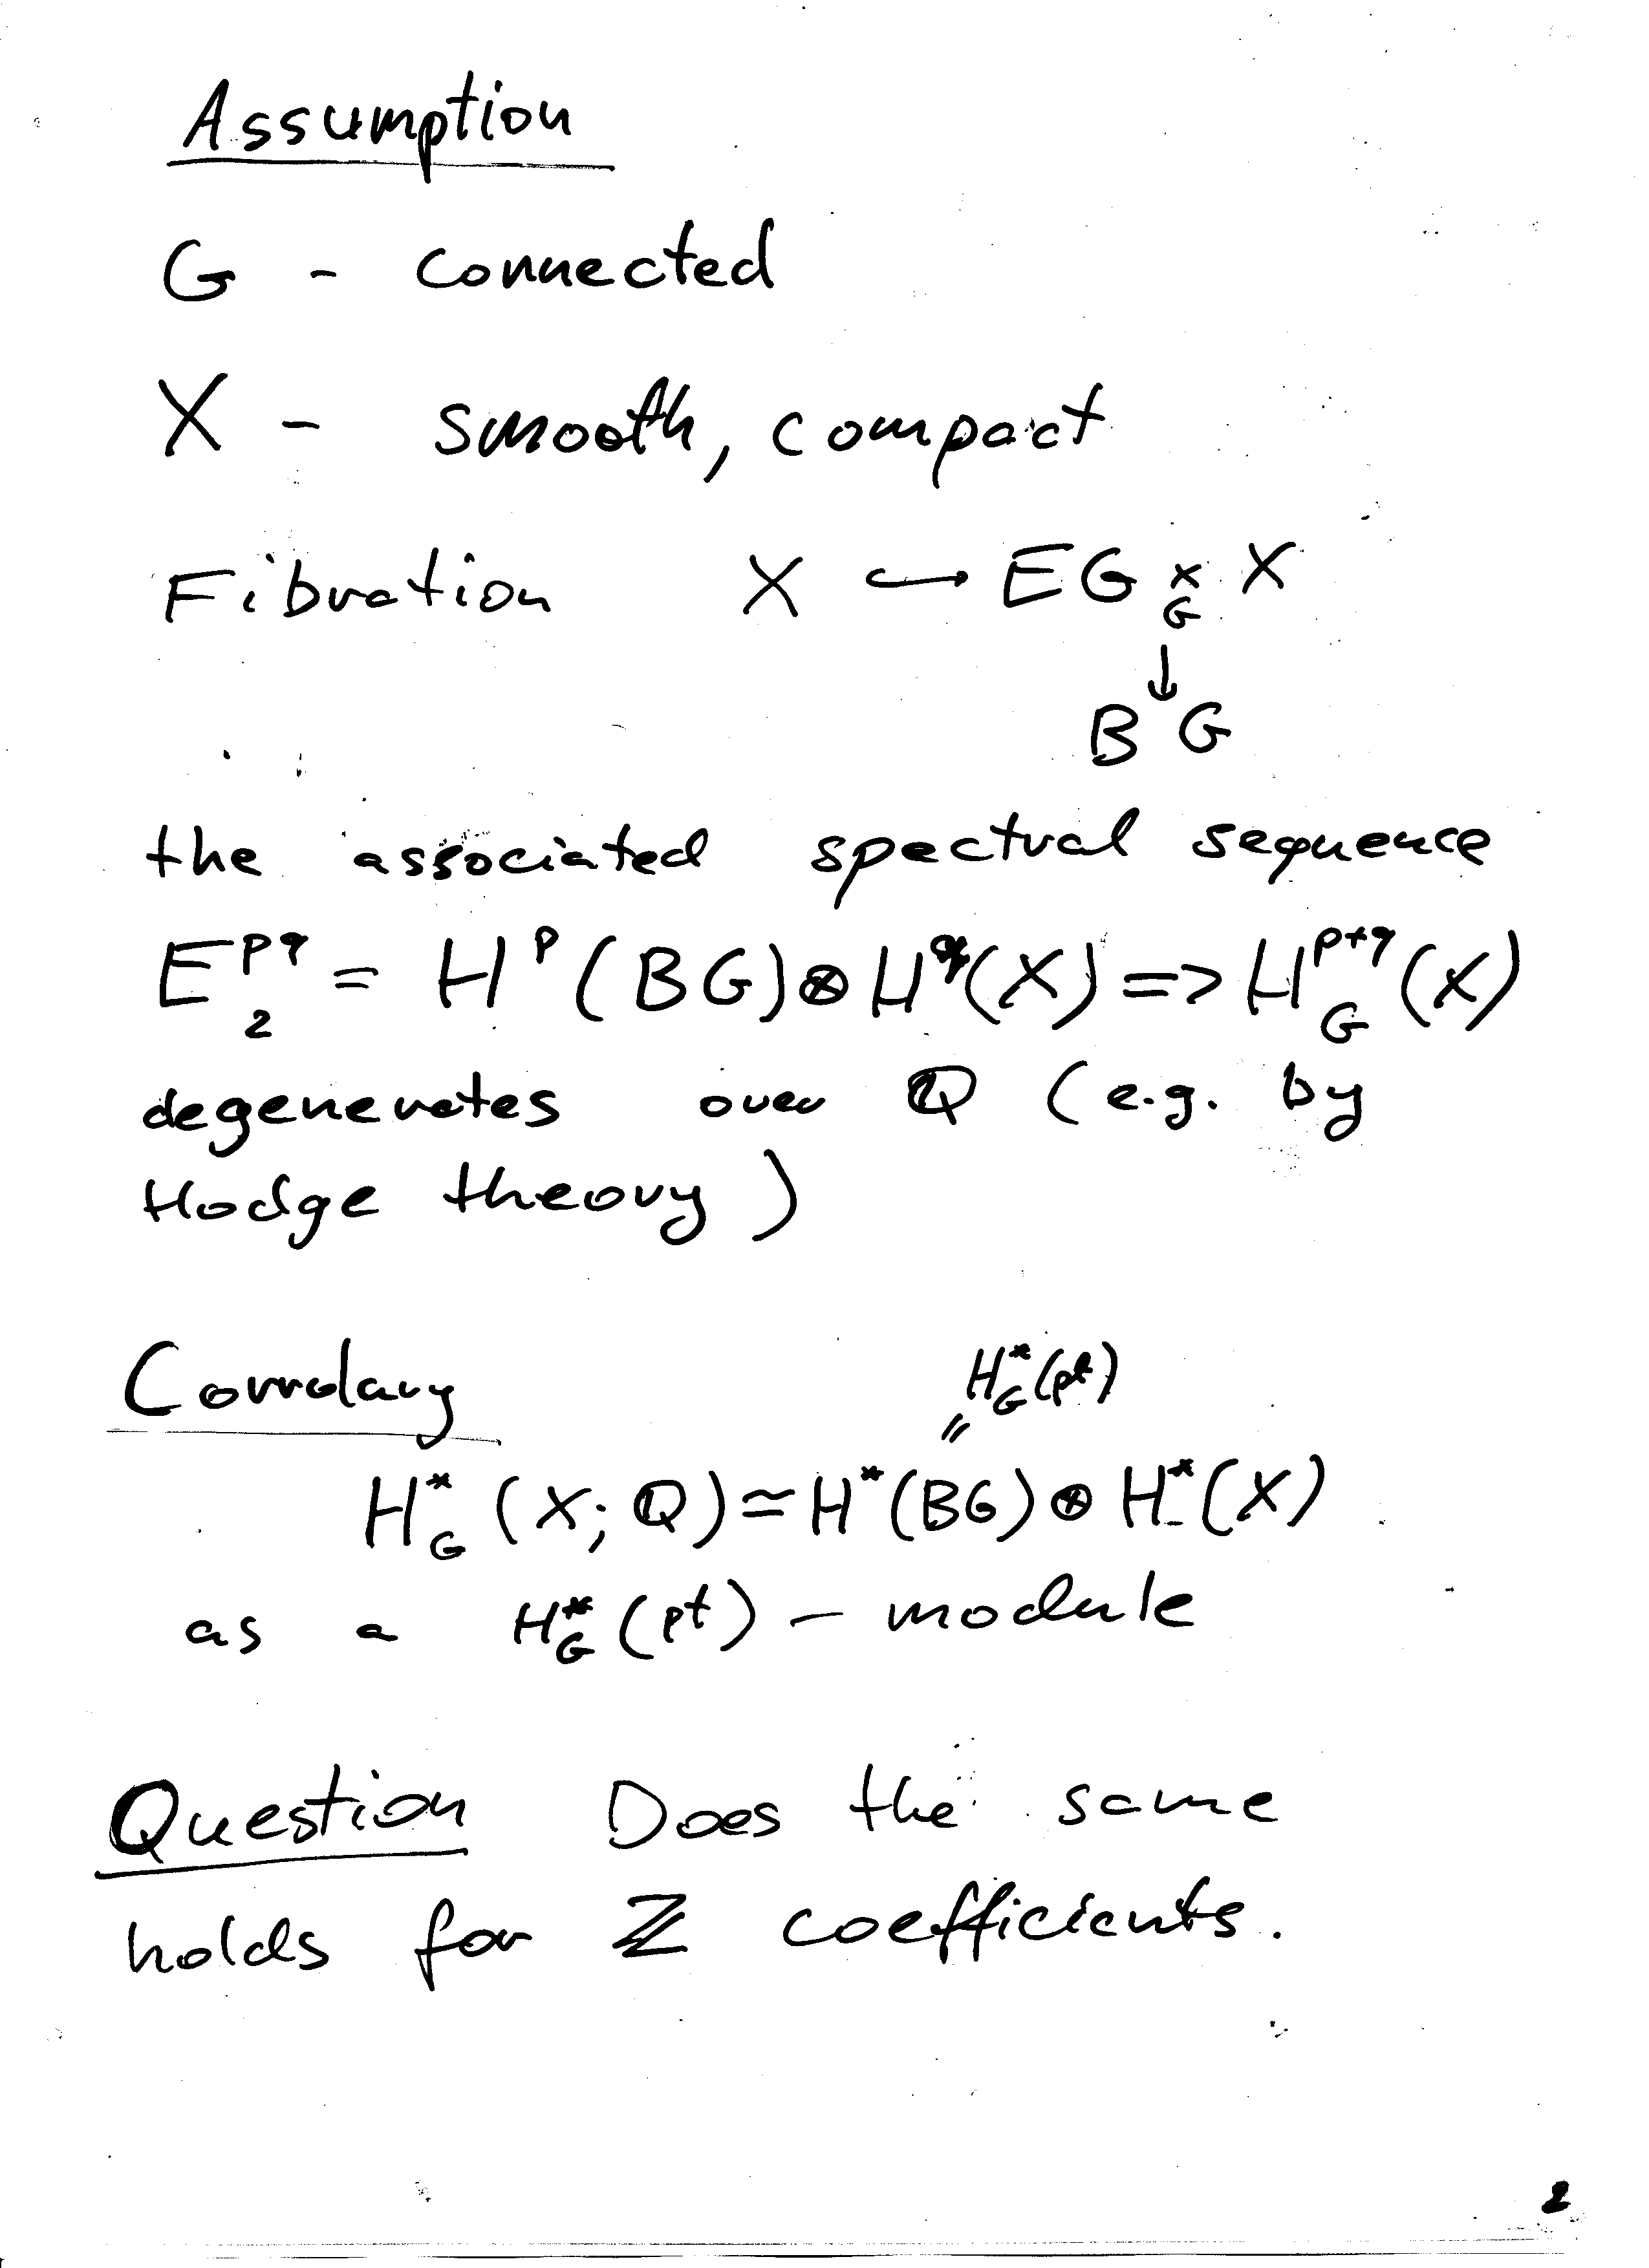 Assumption
G - connected
X - smooth, compact
Fibration X ↪ EG ×_G X
↓
BG
the associated spectral sequence
E_2^{pq} = H^p(BG) ⊗ H^q(X) => H_G^{p+q}(X)
degenerates over ℚ (e.g. by
Hodge theory)
Corrolary H_G^*(pt)
"
H_G^*(X; ℚ) ≃ H^*(BG) ⊗ H^*(X)
as a H_G^*(pt) - module
Question Does the same
holds for ℤ coefficients.
2